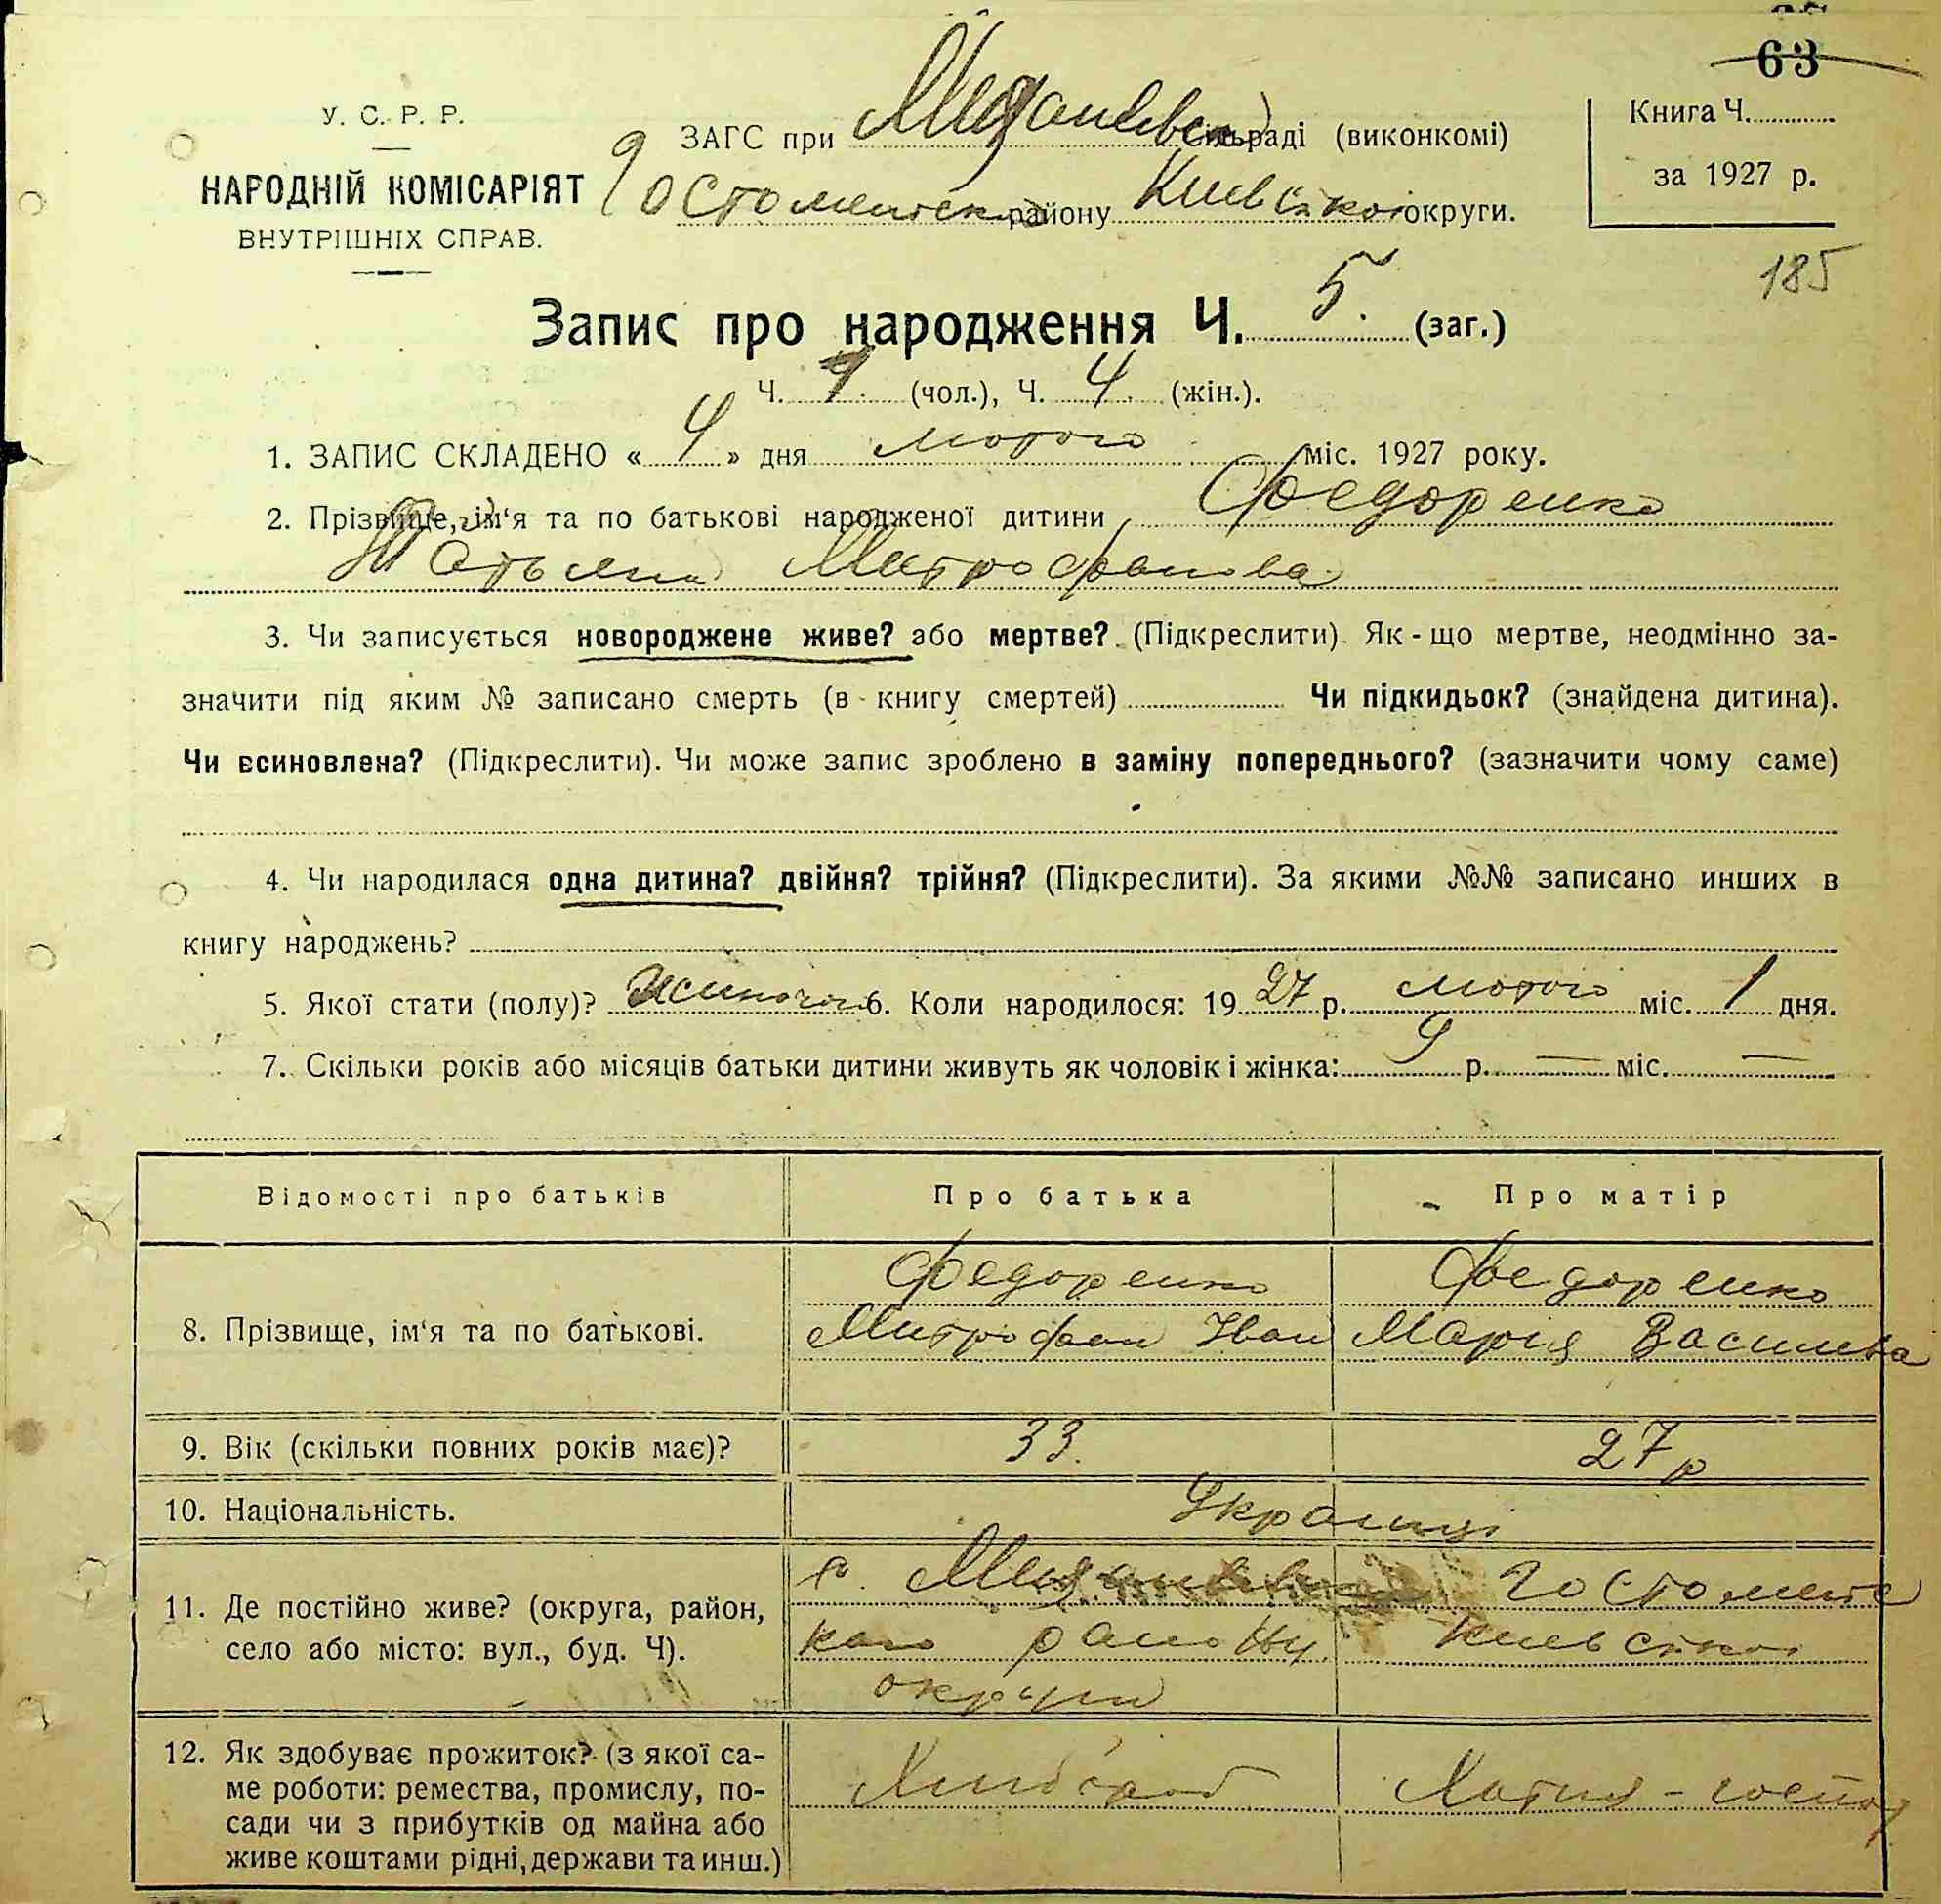 63
У. С. Р. Р.
НАРОДНІЙ КОМІСАРІЯТ
ВНУТРІШНІХ СПРАВ.
ЗАГС при сільраді (виконкомі)
Гостомельск району Київської округи.
Книга Ч.
за 1927 р.
185
Запис про народження Ч. 5. (заг.)
Ч. (чол.), Ч. 4. (жін.).
1. ЗАПИС СКЛАДЕНО «4» дня лютого міс. 1927 року.
2. Прізвище, ім'я та по батькові народженої дитини Федоренко
Татьяна Митрофанова
3. Чи записується новороджене живе? або мертве? (Підкреслити). Як-що мертве, неодмінно за-
значити під яким № записано смерть (в книгу смертей) Чи підкидьок? (знайдена дитина).
Чи всиновлена? (Підкреслити). Чи може запис зроблено в заміну попереднього? (зазначити чому саме)
4. Чи народилася одна дитина? двійня? трійня? (Підкреслити). За якими №№ записано инших в
книгу народжень?
5. Якої стати (полу)? жіночої 6. Коли народилося: 1927 р. лютого міс. 1 дня.
7. Скільки років або місяців батьки дитини живуть як чоловік і жінка: 9 р. — міс. —
Відомості про батьків Про батька Про матір
8. Прізвище, ім'я та по батькові. Федоренко Митрофан Іван Федоренко Марія Василева
9. Вік (скільки повних років має)? 33. 27 р
10. Національність. Українці
11. Де постійно живе? (округа, район, с. Гостомельс
село або місто: вул., буд. Ч). кого району Київської
округи
12. Як здобуває прожиток? (з якої са-
ме роботи: ремества, промислу, по- Хлібороб Хатня-господ
сади чи з прибутків од майна або
живе коштами рідні, держави та инш.)